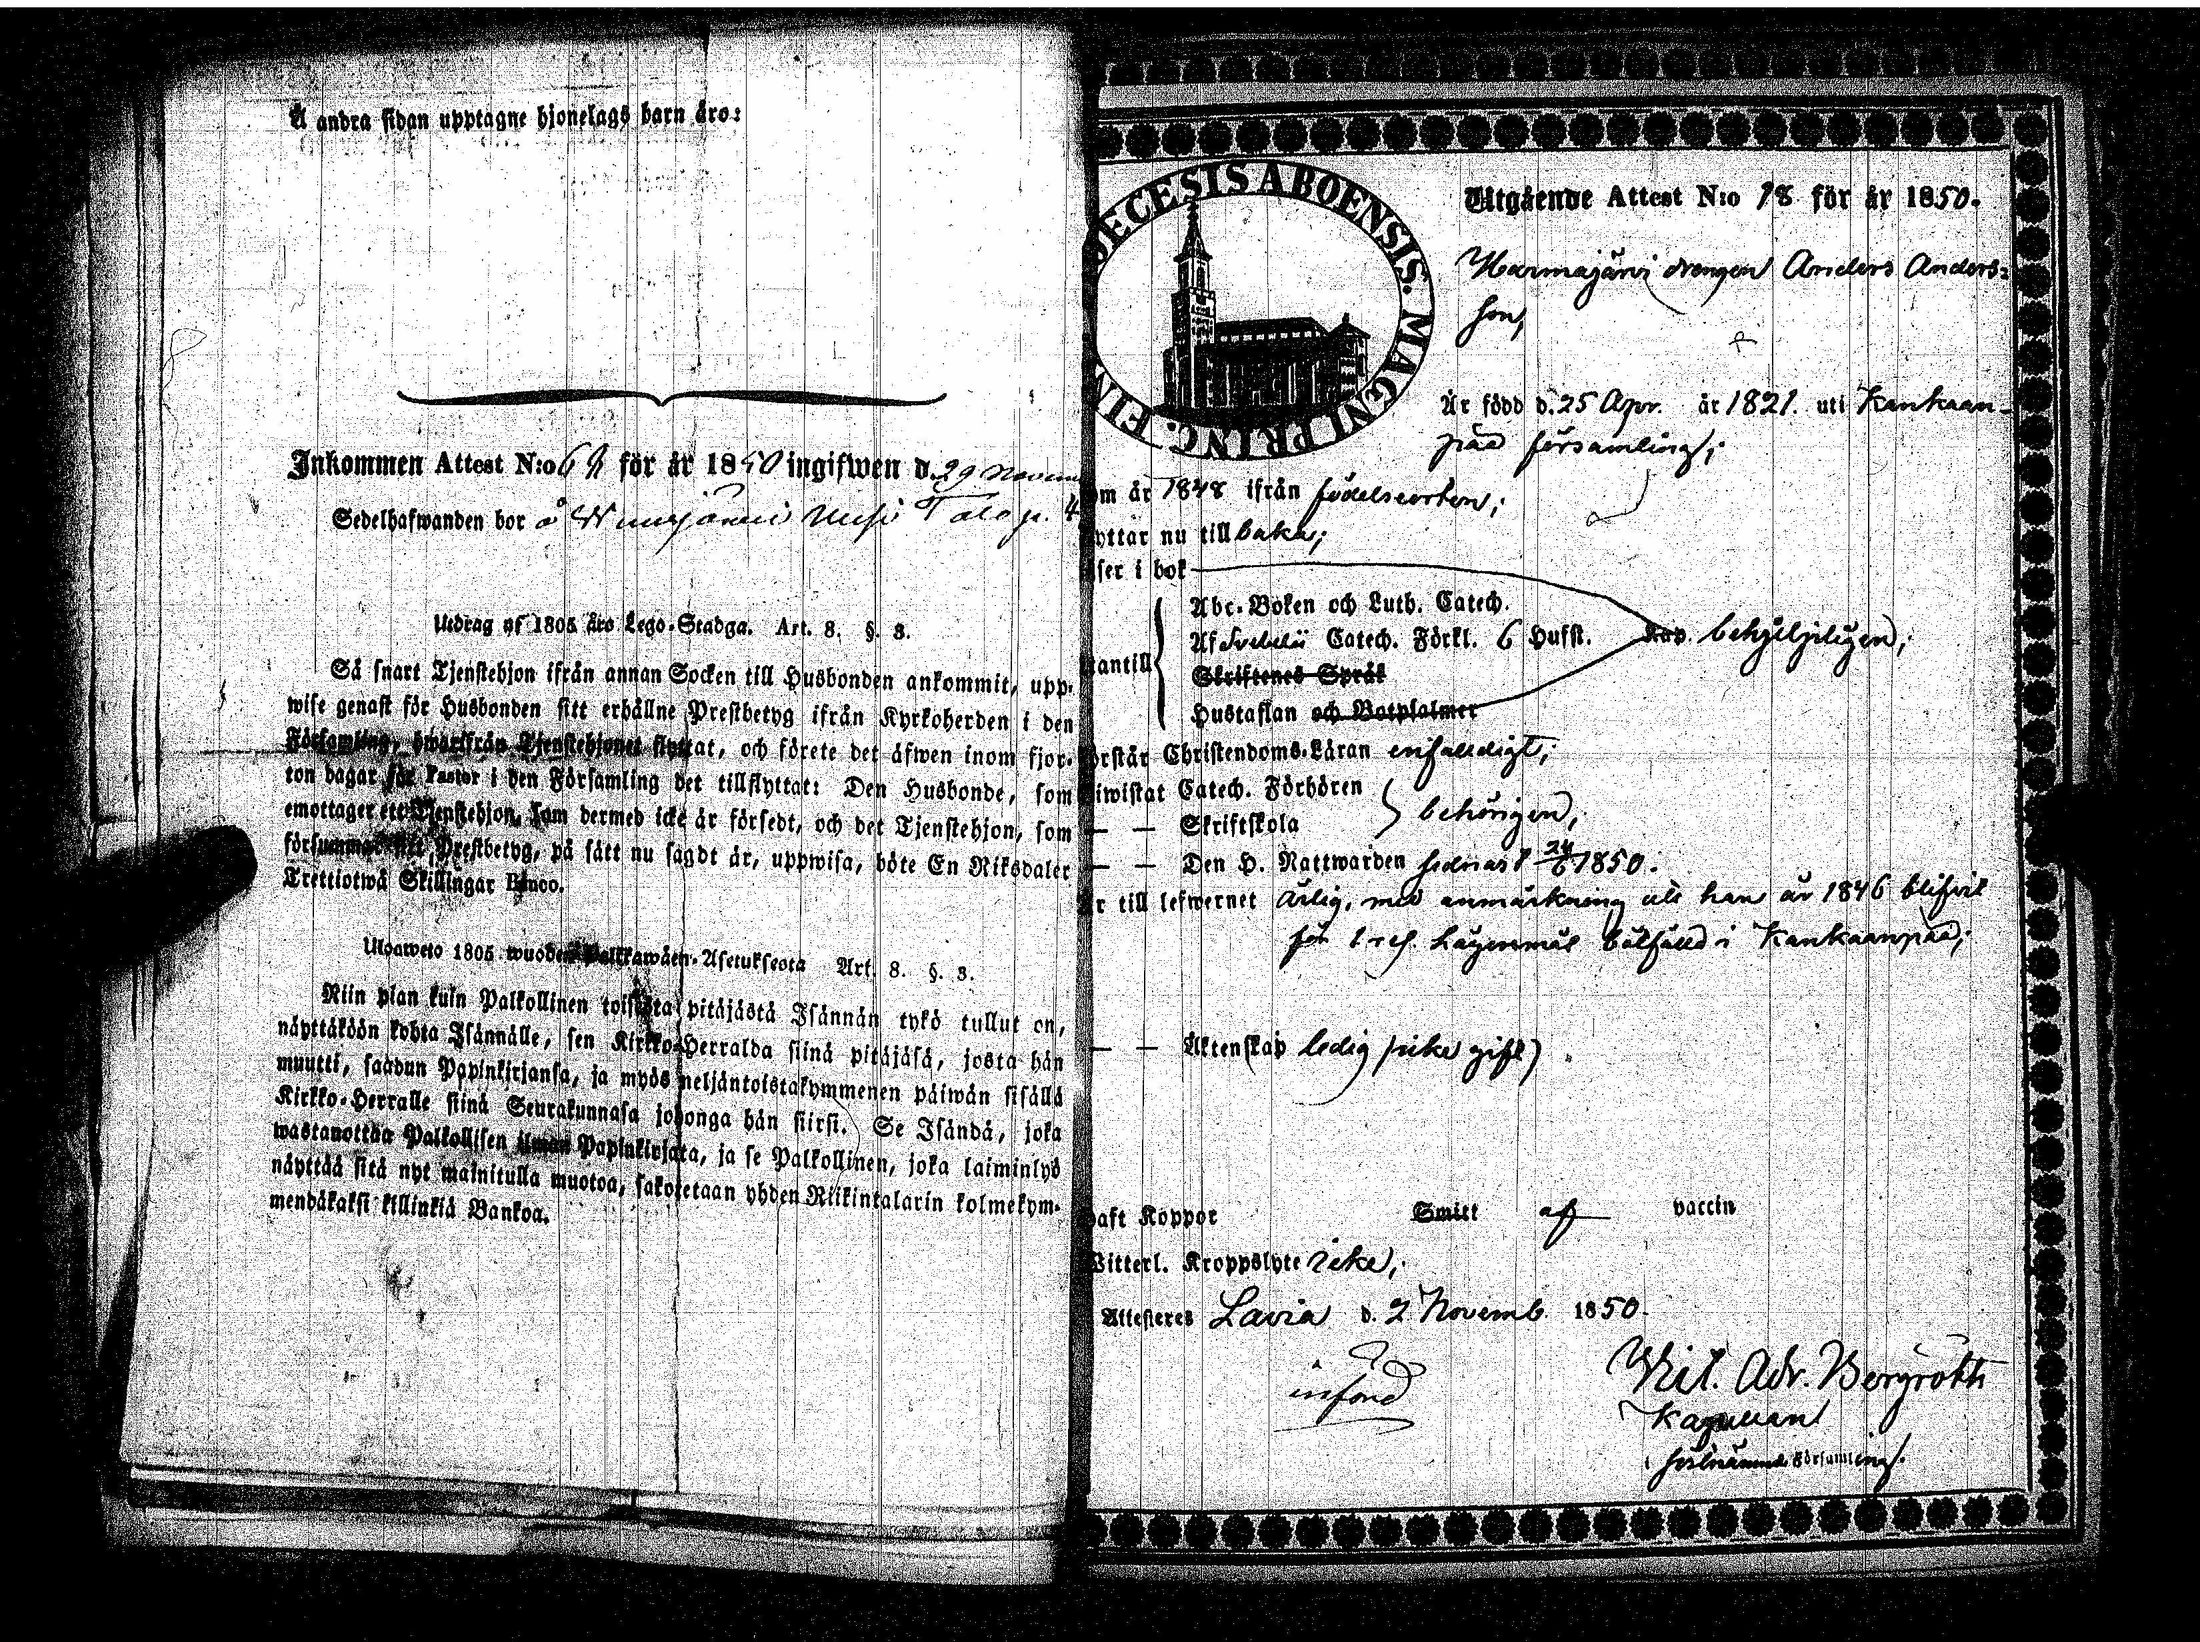 Å andra sidan upptagne hjonelags barn äro:
Inkommen Attest N:o 6 för år 1850 ingifwen d. 29 Novem
Sedelhafwanden bor å
Utdrag af 1805 års Lego-Stadga. Art. 8. §. 3.
Så snart Tjenstehjon ifrån annan Socken till Husbonden ankommit, upp-
wise genast för Husbonden sitt erhållne Prestbetyg ifrån Kyrkoherden i den
Församling, hwarifrån Tjenstehjonet flyttat, och förete det äfwen inom fjor-
ton dagar för Pastor i den Församling det tillflyttat: Den Husbonde, som
emottager ett Tjenstehjon, som dermed icke är försedt, och det Tjenstehjon, som
försummat sitt Prestbetyg, på sätt nu sagdt är, uppwisa, böte En Riksdaler
Trettiotwå Skillingar Banco.
Ulosweto 1805 wuoden Palkkawäen-Asetuksesta Art. 8. §. 3.
Niin pian kuin Palkollinen toisesta pitäjästä Isännän tykö tullut on,
näyttäköön kohta Isännälle, sen Kirkko-Herralda siinä pitäjäsä, josta hän
muutti, saadun Papinkirjansa, ja myös neljäntoistakymmenen päiwän sisällä
Kirkko-Herralle siinä Seurakunnasa johonga hän siirsi. Se Isändä, joka
wastanottaa Palkollisen ilman Papinkirjata, ja se Palkollinen, joka laiminlyö
näyttää sitä nyt mainitulla muotoa, sakotetaan yhden Riikintalarin kolmekym-
mendäkaksi killinkiä Bankoa.
OECESIS ABOENSIS. MAGNI PRINC. FIN
Utgående Attest N:o 78 för år 1850.
Harmajärvi drengen Anders Anders-
son,
Är född d. 25 Apr. år 1821. uti Kankaan-
pää församling;
om år 1848 ifrån födelseorten;
yttar nu tillbaka;
äser i bok
Abc-Boken och Luth. Catech.
Af Svebelii Catech. Förkl. 6 Hufst. behjelpligen;
utantill
Skriftenes Språk
Hustaflan och Botpsalmer
örstår Christendoms-Läran enfaldigt;
iwistat Catech. Förhören
— — Skriftskola behörigen,
— — Den H. Nattwarden sednast 24/6 1850.
r till lefwernet ärlig, med anmärkning att han år 1846 blifvit
för 1 res. Lägersmål bötfälld i Kankaanpää;
— — Äktenskap ledig (icke gift)
haft Koppor Smitt af vaccin
Witterl. Kroppslyte icke;
Attesteres Lavia d. 2 Novemb. 1850.
Vil. Adr. Bergroth
Kapellan
i förenämnde Församling.